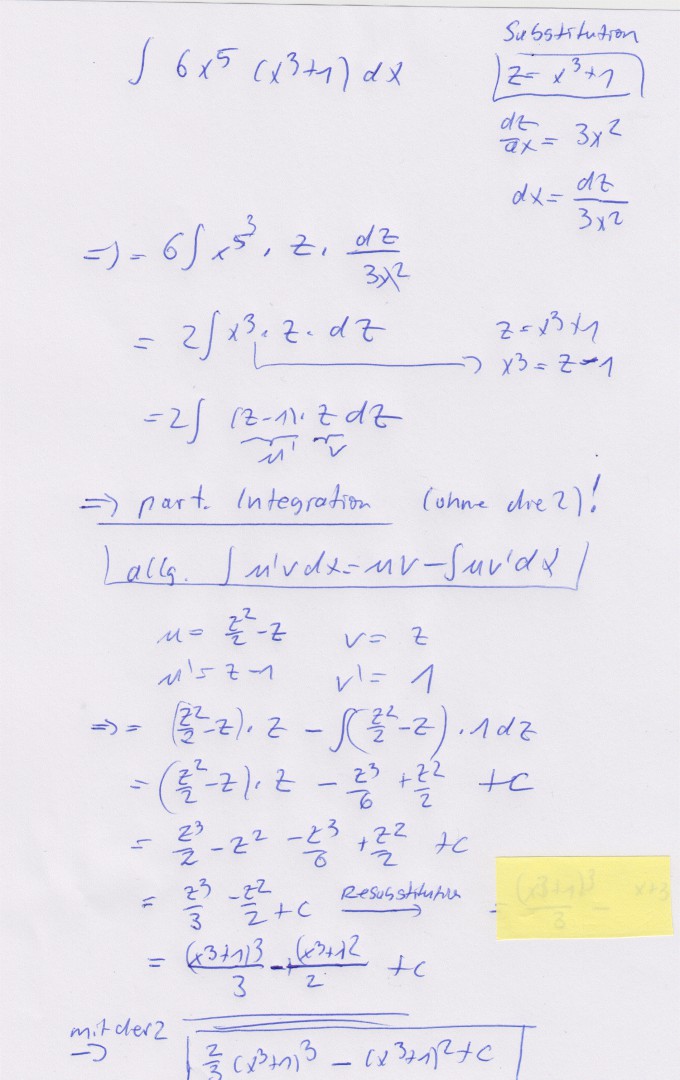 Substitution
∫ 6x⁵ (x³+1) dx
z = x³+1
dz/dx = 3x²
dx = dz/3x²
=> = 6∫ x⁵ ³ · z · dz/3x²
= 2∫ x³ · z · dz
z = x³+1
x³ = z-1
= 2∫ (z-1) · z dz
u' v
=> part. Integration (ohne die 2)!
allg. ∫ u'v dx = uv - ∫ uv' dx
u = z²/2 - z v = z
u' = z-1 v' = 1
=> = (z²/2 - z) · z - ∫(z²/2 - z) · 1 dz
= (z²/2 - z) · z - z³/6 + z²/2 + c
= z³/2 - z² - z³/6 + z²/2 + c
= z³/3 - z²/2 + c Resubstitution →
= (x³+1)³/3 - (x³+1)²/2 + c
mit der 2
→ 2/3 (x³+1)³ - (x³+1)² + c